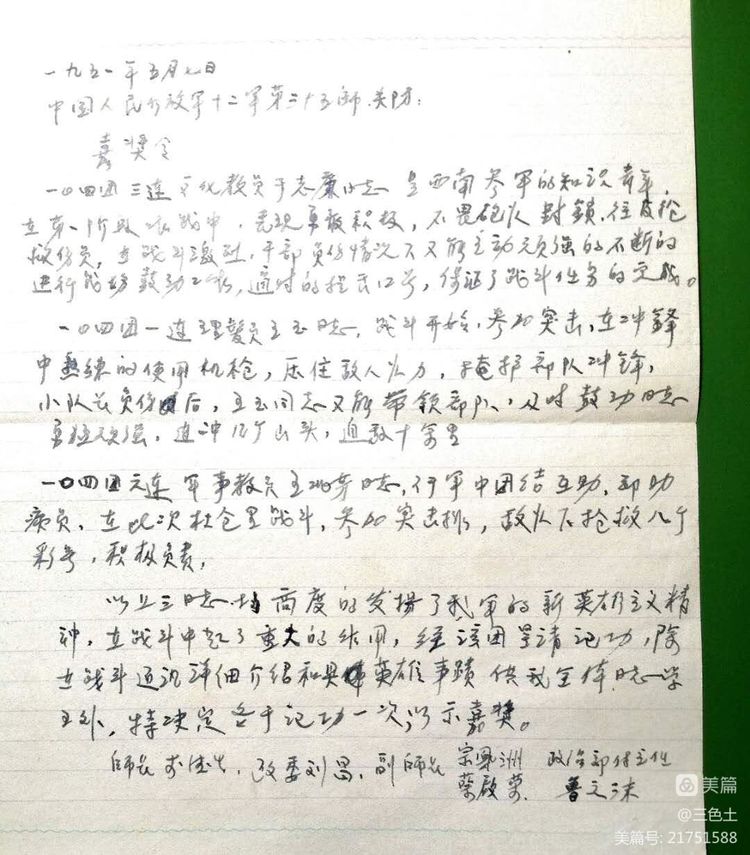 一九五一年五月七日
中国人民解放军十二军第三十五师.关防:
嘉奖令
一〇四团三连文化教员于志廉同志 是西南参军的知识青年,
在第一阶段作战中,表现勇敢积极,不畏砲火封鎖,往返抢
救伤员,在战斗激烈,干部负伤情况下又能主动顽强的不断的
进行战场鼓动工作,适时的提出口号,保证了战斗任务的完成。
一〇四团一连理髮员王玉同志,战斗开始,参加突击,在冲鋒
中熟練的使用机枪,压住敌人火力,掩护部队冲锋,
小队长负伤后,王玉同志又能带领部队,及时鼓动同志
勇猛顽强,连冲几个山头,追敌十余里
一〇四团六连军事教员王 同志,行军中团结互助,帮助
病员,在此次 里战斗,参加突击排,敌火下抢救几个
彩号,积极负责,
以上三同志 高度的发揚了我军的新英雄主义精
神,在战斗中起了重大的作用,经该团呈请记功,除
在战斗通讯详细介绍和 英雄事蹟供我全体同志学
习外,特决定各予记功一次,以示嘉獎。
师长李德生,政委刘昌,副师长 宗凤洲 蔡啟荣 政治部付主任 鲁之沫
美篇
@三色土
美篇号: 21751588